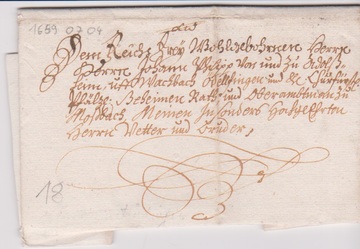 1659 07 04
Dem Reichs Frey Wohlgebohrnen Herrn
Herrn Johann Philip von und zu
heim uff Wachbach und
Pfältz. Geheimen Rath und Oberambtman zu
Mosbach, Meinen Insonders Hochgeehrten
Herrn Vetter und Bruder,
18